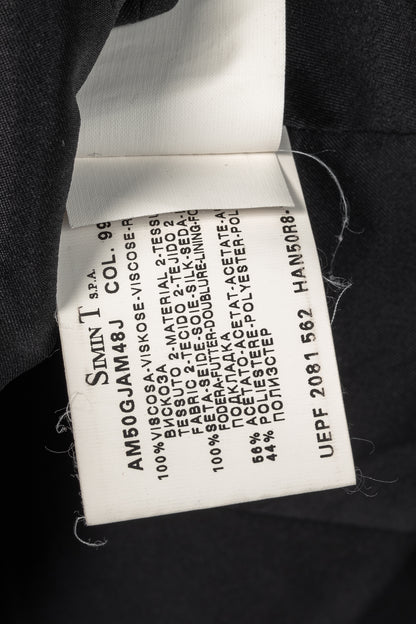 SIMINT S.P.A.
AM50GJAM48J COL. 99
100%VISCOSA-VISKOSE-VISCOSE-R
ВИСКОЗА
TESSUTO 2-MATERIAL 2-TESSU
FABRIC 2-TECIDO 2-TEJIDO 2
100% SETA-SEIDE-SOIE-SILK-SEDA-
FODERA-FUTTER-DOUBLURE-LINING-FO
ПОДКЛАДКА
56% ACETATO-ACETAT-ACETATE-A
44% POLIESTERE-POLYESTER-POL
ПОЛИЭСТЕР
UEPF 2081 562 HAN50R8-